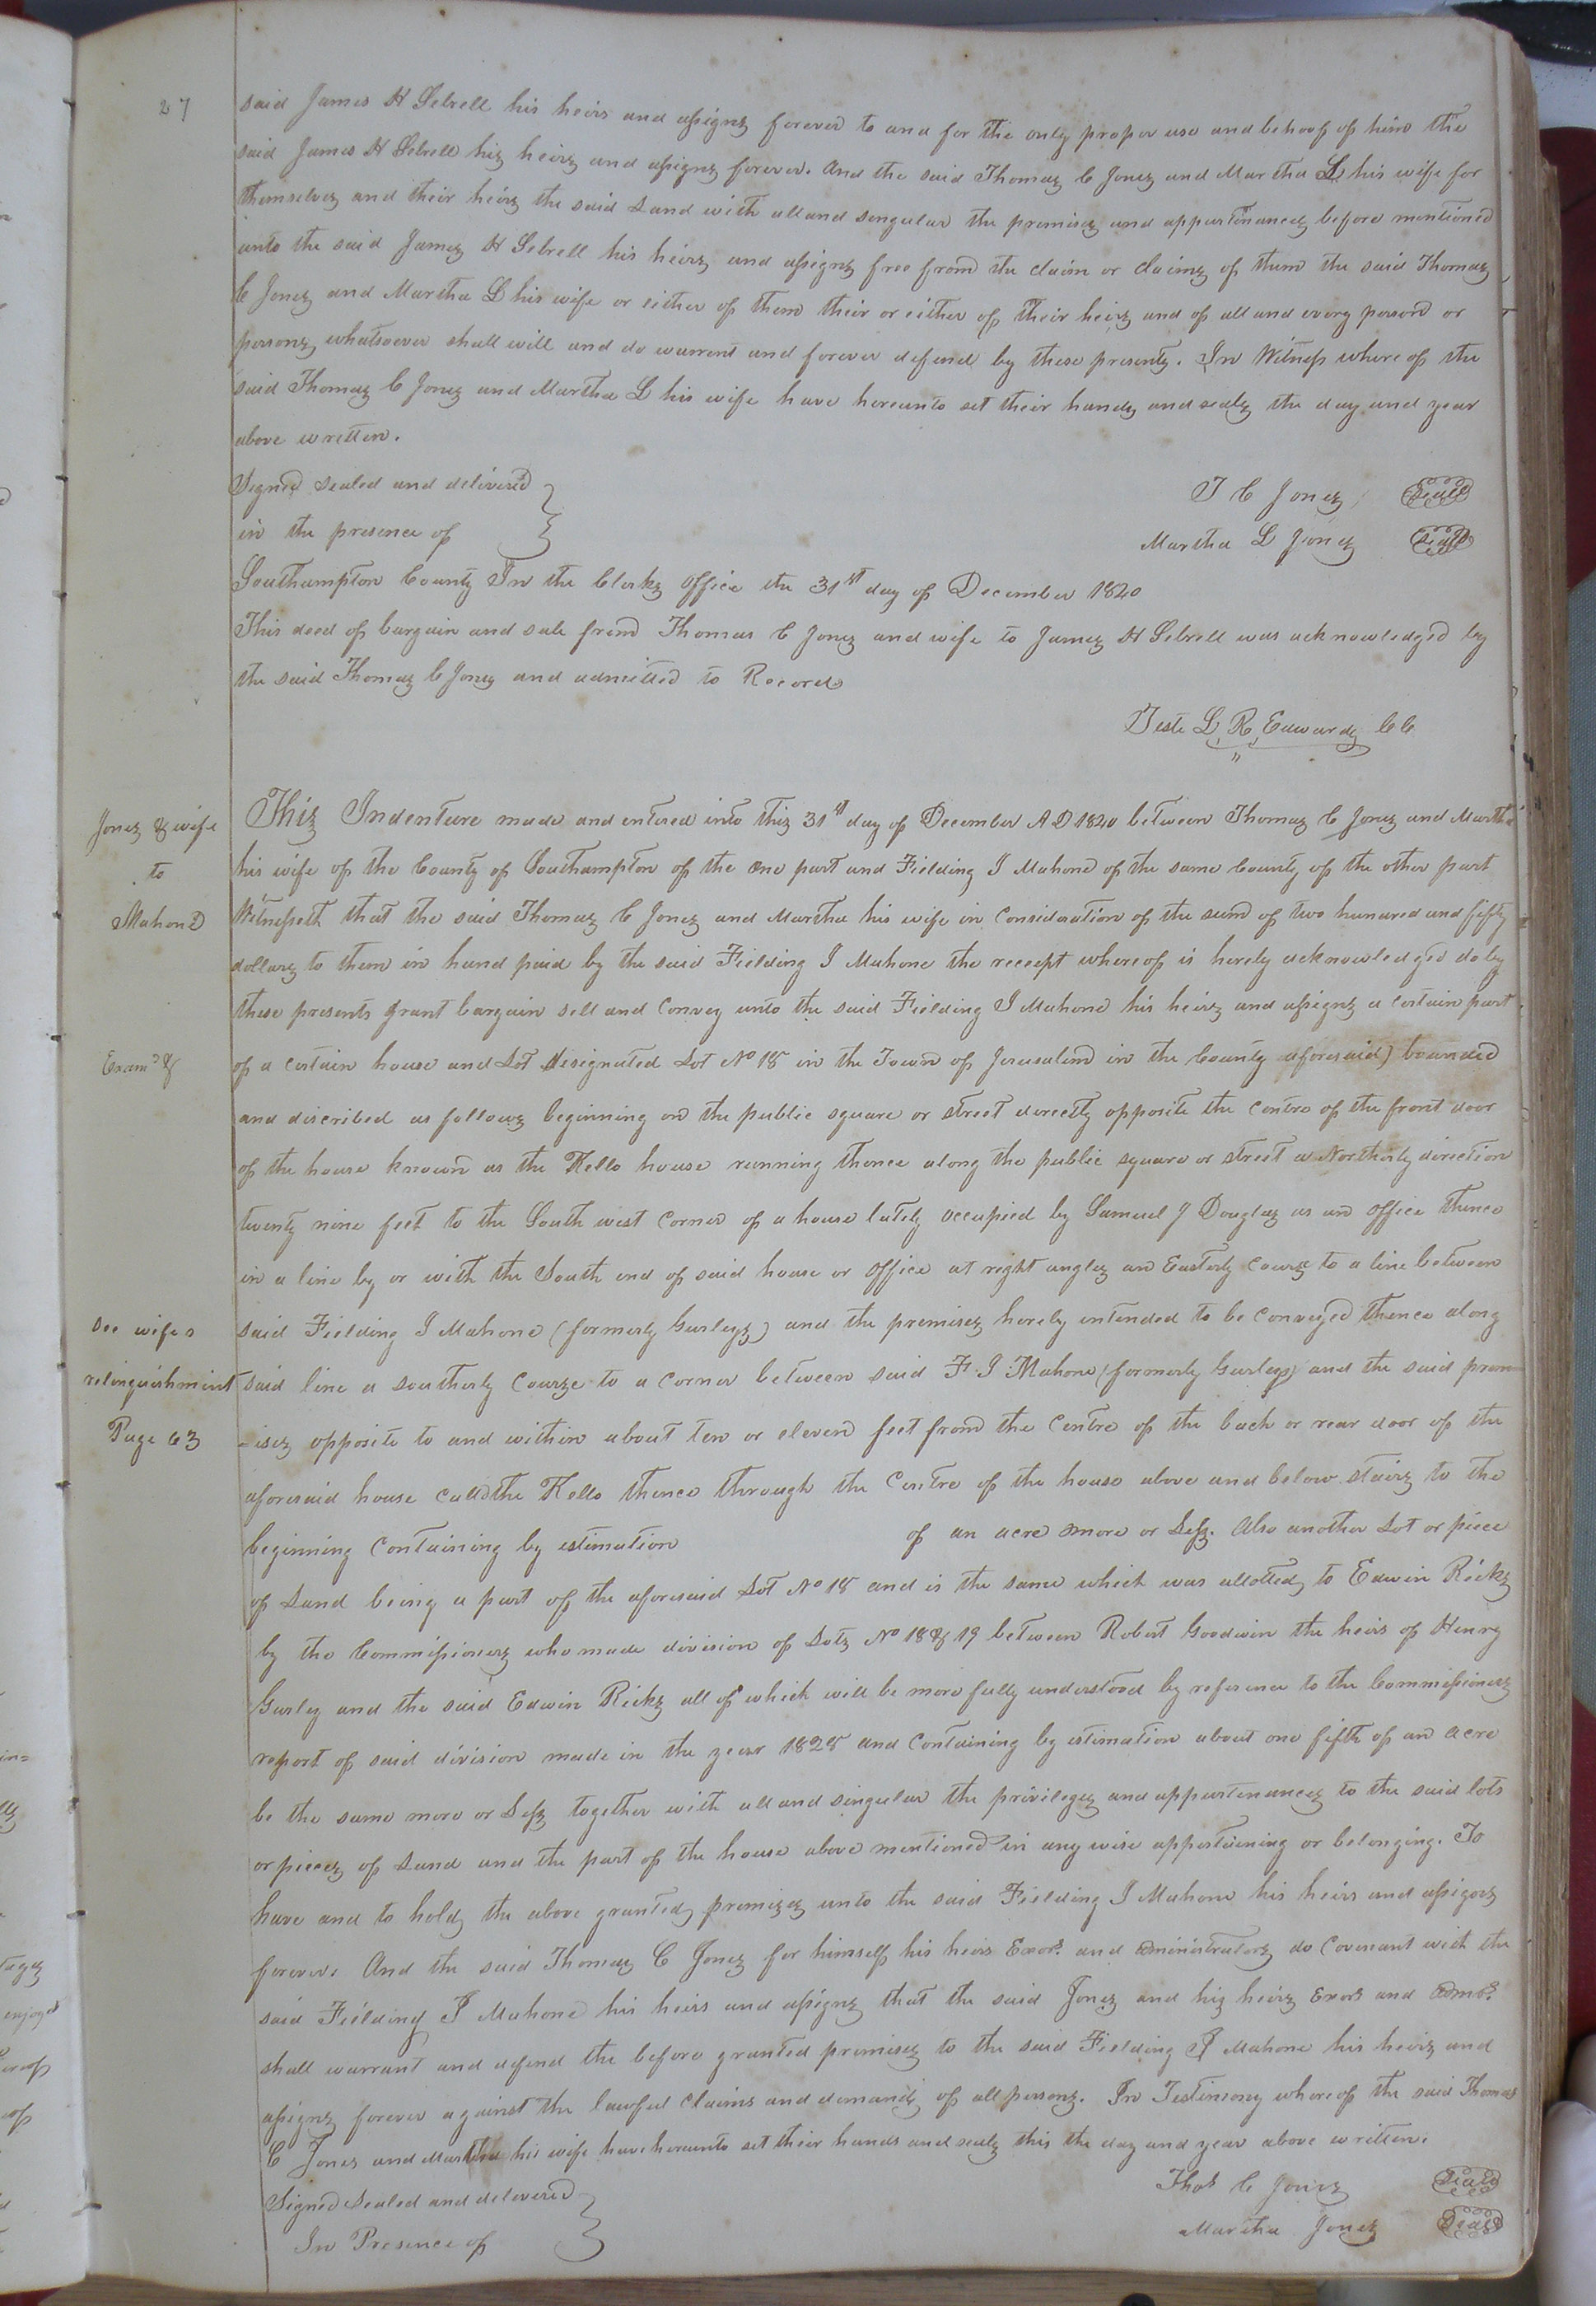 27
said James H Sebrell his heirs and assigns forever to and for the only proper use and behoof of him the
said James H Sebrell his heirs and assigns forever. And the said Thomas C Jones and Martha L his wife for
themselves and their heirs the said Land with all and singular the premises and appurtinances before mentioned
unto the said James H Sebrell his heirs and assigns free from the claim or claims of them the said Thomas
C Jones and Martha L his wife or either of them their or either of their heirs and of all and every person or
persons whatsoever shall will and do warrent and forever defend by these presents. In Witness where of the
said Thomas C Jones and Martha L his wife have hereunto set their hands and seals the day and year
above written.
Signed sealed and delivered
in the presence of
T C Jones Seal
Martha L Jones Seal
Southampton County In the Clerks office the 31st day of December 1840
This deed of bargain and sale from Thomas C Jones and wife to James H Sebrell was acknowledged by
the said Thomas C Jones and admitted to Record
Teste L R Edwards CC
Jones & wife
to
Mahone
Examd &
See wifes
relinquishment
Page 63
This Indenture made and entered into this 31st day of December AD 1840 between Thomas C Jones and Martha
his wife of the County of Southampton of the one part and Fielding J Mahone of the same County of the other part
Witnesseth that the said Thomas C Jones and Martha his wife in Consideration of the sum of two hundred and fifty
dollars to them in hand paid by the said Fielding J Mahone the receept whereof is hereby acknowledged do by
these presents grant bargain sell and Convey unto the said Fielding J Mahone his heirs and assigns a certain part
of a certain house and Lot designated Lot No 18 in the Town of Jerusalem in the County aforesaid) bounded
and discribed as follows beginning on the public square or street directly opposite the Centre of the front door
of the house known as the Kello house running thence along the public square or street a Northerly direction
twenty nine feet to the South west Corner of a house lately occupied by Samuel J Douglas as an office thence
in a line by or with the South end of said house or office at right angles an Easterly Course to a line between
said Fielding J Mahone (formerly Gurleys) and the premises hereby intended to be Conveyed thence along
said line a southerly Course to a Corner between said F. J. Mahone (formerly Gurleys) and the said prem
-ises opposite to and within about ten or eleven feet from the Centre of the back or rear door of the
aforesaid house calld the Kello thence through the Centre of the house above and below stairs to the
beginning Containing by estimation of an acre more or Less. Also another Lot or piece
of Land being a part of the aforesaid Lot No 18 and is the same which was allotted to Edwin Ricks
by the Commissioners who made division of Lots No 18 & 19 between Robert Goodwin the heirs of Henry
Gurley and the said Edwin Ricks all of which will be more fully understood by reference to the Commissioners
report of said division made in the year 1828 and Containing by estimation about one fifth of an acre
be the same more or Less together with all and singular the privileges and appurtenances to the said lots
or pieces of Land and the part of the house above mentioned in any wise appertaining or belonging. To
have and to hold the above granted premises unto the said Fielding J Mahone his heirs and assigns
forever. And the said Thomas C Jones for himself his heirs Exors and administrators do Covenant with the
said Fielding J Mahone his heirs and assigns that the said Jones and his heirs Exors and admrs
shall warrant and defend the before granted premises to the said Fielding J Mahone his heirs and
assigns forever against the lawful claims and demands of all persons. In Testimony whereof the said Thomas
C Jones and Martha his wife have hereunto set their hands and seals this the day and year above written.
Signed Sealed and delivered
In Presence of
Thos C Jones Seal
Martha Jones Seal